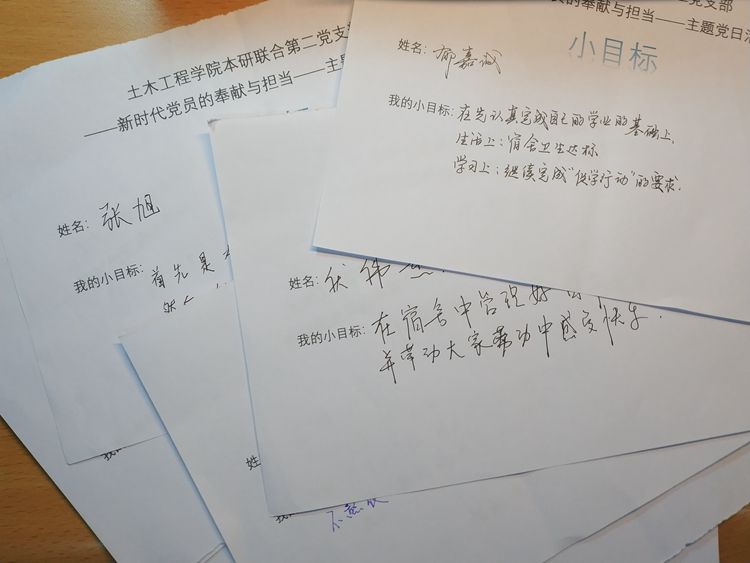 土木工程学院本研联合第二党支
——新时代党员的奉献与担当——主
姓名：张旭
我的小目标：首先是
党支部
员的奉献与担当——主题党日活
小目标
姓名：郁嘉诚
我的小目标：在先认真完成自己的学业的基础上，
生活上：宿舍卫生达标
学习上：继续完成“促学行动”的要求.
姓名：
我的小目标：在宿舍中管理好
并带动大家劳动中感受快乐.
姓